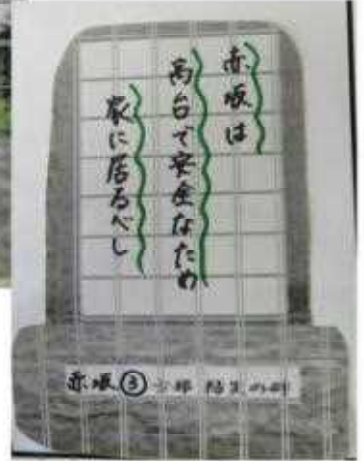 赤坂は
高台で安全なため
家に居るべし
赤坂③